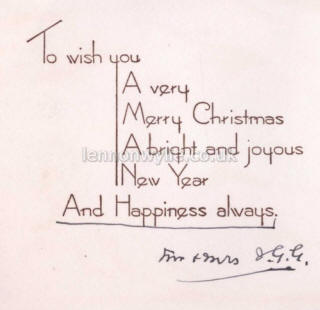 To wish you
A very
Merry Christmas
A bright and joyous
lennonwylie.co.uk
New Year
And Happiness always.
J.G.G.